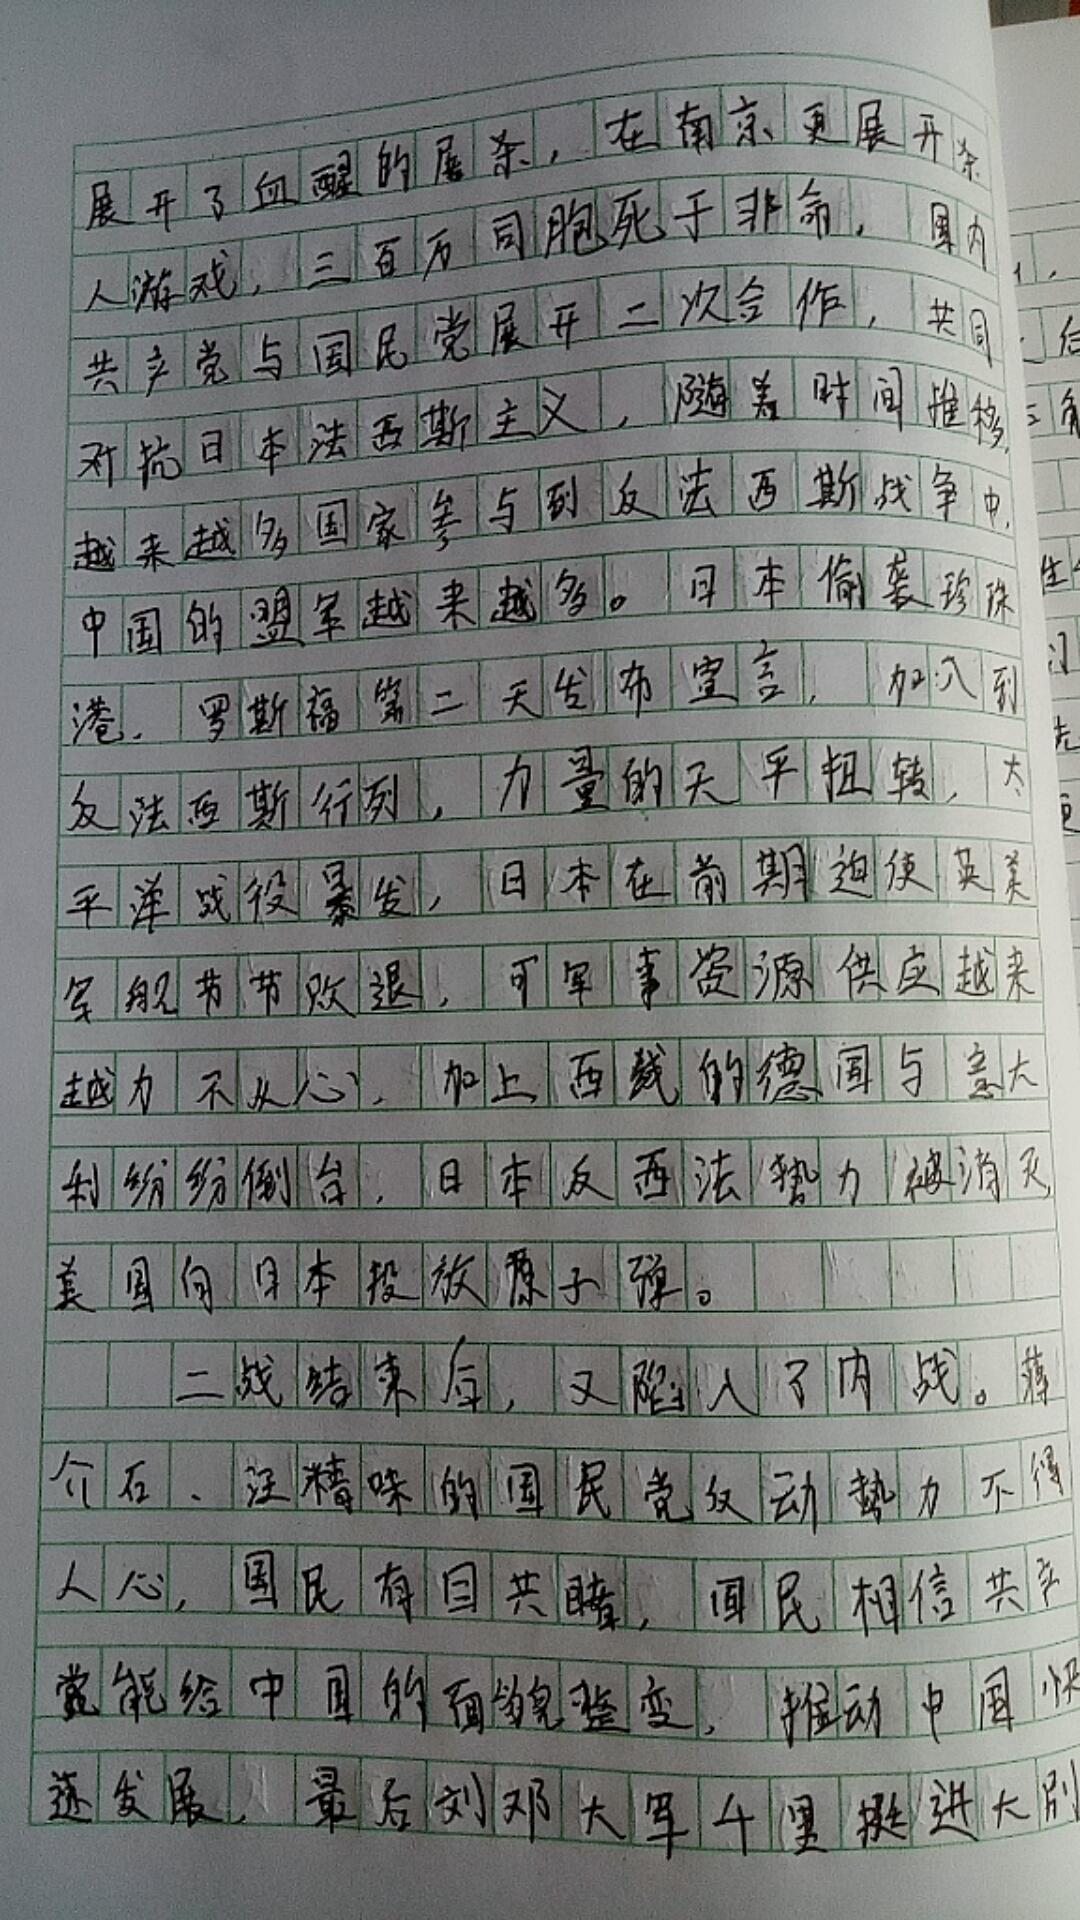 展开了血醒的屠杀，在南京更展开杀
人游戏，三百万同胞死于非命，国内
共产党与国民党展开二次合作，共同
对抗日本法西斯主义，随着时间推移，
越来越多国家参与到反法西斯战争中，
中国的盟军越来越多。日本偷袭珍珠
港，罗斯福第二天发布宣言，加入到
反法西斯行列，力量的天平扭转，太
平洋战役暴发，日本在前期迫使英美
军舰节节败退，可军事资源供应越来
越力不从心，加上西线的德国与意大
利纷纷倒台，日本反西法势力被消灭，
美国向日本投放原子弹。
二战结束后，又陷入了内战。蒋
介石、汪精味的国民党反动势力不得
人心，国民有目共睹，国民相信共产
党能给中国的面貌整变，推动中国快
速发展，最后刘邓大军千里挺进大别
生